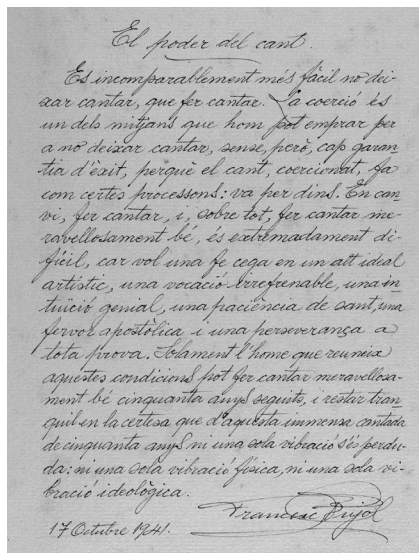 El poder del cant.
Es incomparablement més fàcil no dei-
xar cantar, que fer cantar. La coerció és
un dels mitjans que hom pot emprar per
a no deixar cantar, sense, però, cap garan-
tia d'èxit, perquè el cant, coercionat, fa
com certes processons: va per dins. En can-
vi, fer cantar, i, sobre tot, fer cantar me-
ravellosament bé, és extremadament di-
fícil, car vol una fe cega en un alt ideal
artístic, una vocació irrefrenable, una in-
tuïció genial, una paciència de sant, una
fervor apostòlica i una perseverança a
tota prova. Solament l'home que reuneix
aquestes condicions pot fer cantar meravellosa-
ment bé cinquanta anys seguits, i restar tran-
quil en la certesa que d'aquesta immensa cantada
de cinquanta anys, ni una sola vibració s'és perdu-
da: ni una sola vibració física, ni una sola vi-
bració ideològica.
Francesc Pujol
17 Octubre 1941.